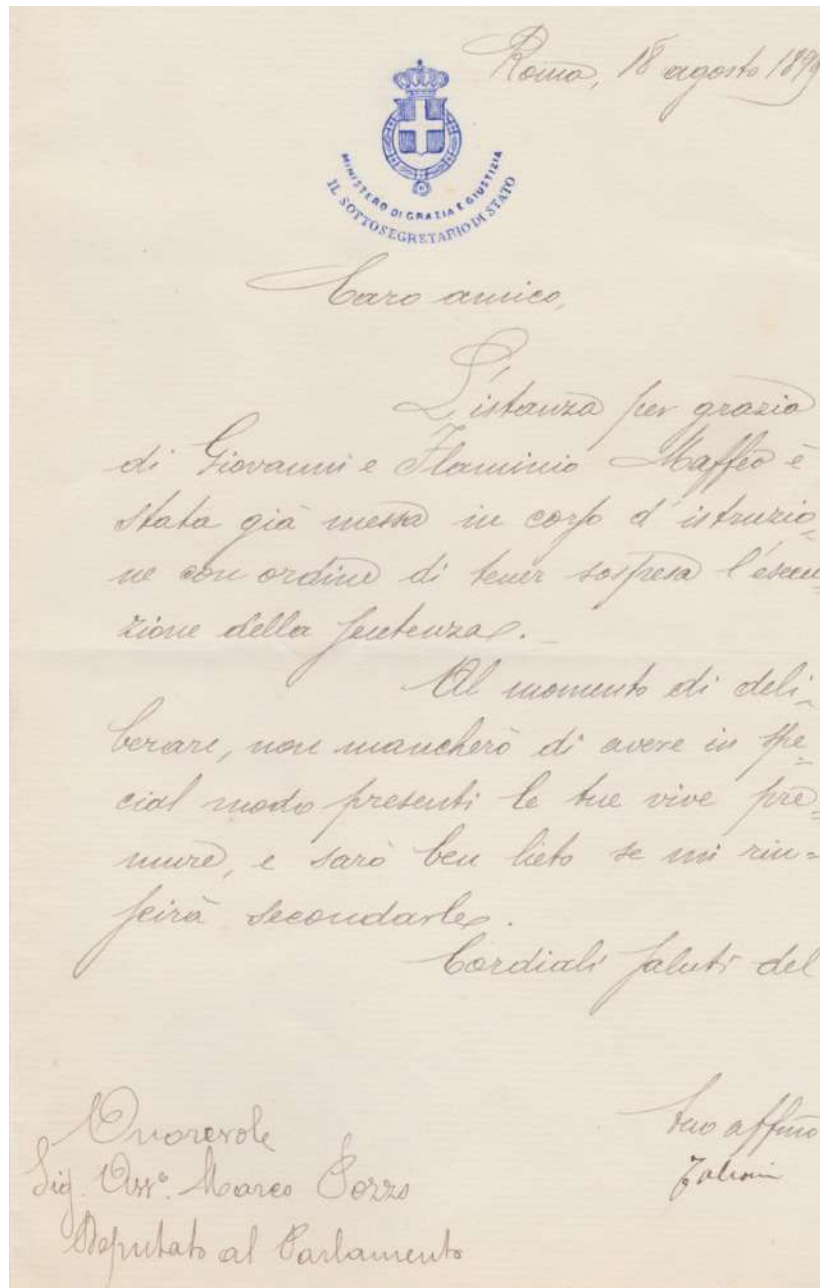 Roma, 18 agosto 1899
MINISTERO DI GRAZIA E GIUSTIZIA
IL SOTTOSEGRETARIO DI STATO
Caro amico,
L'istanza per grazia
di Giovanni e Flaminio Maffeo è
stata già messa in corso d'istruzio=
ne con ordine di tener sospesa l'esecu=
zione della sentenza.
Al momento di deli=
berare, non mancherò di avere in spe=
cial modo presenti le tue vive pre=
mure, e sarò ben lieto se mi riu=
scirà secondarle.
Cordiali saluti del
tuo affmo
Onorevole
Sig. Avvo. Marco Pozzo
Deputato al Parlamento